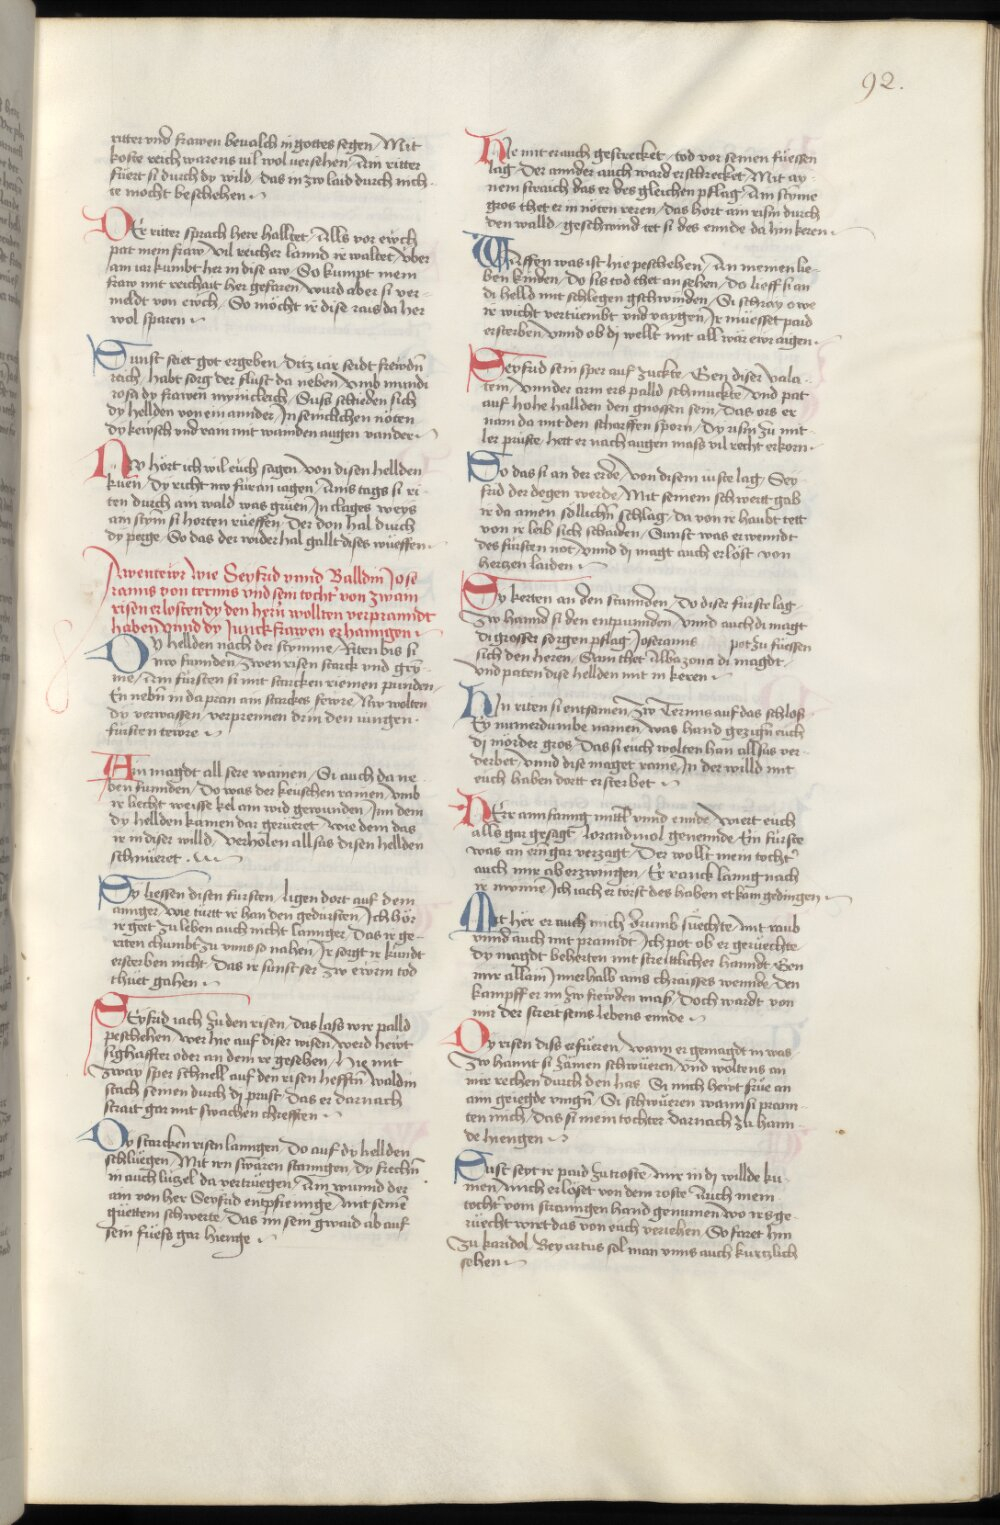 92.
ritter vnd frawen bevalch in gottes segen / Mit
koste reich warens vil wol versehen / Am ritter
füert si durch dy wild / das in zw laid durch nich-
te mocht beschehen
DEr ritter sprach here halltet / Alls vor ewch
pat mein fraw / vil reicher lannd ir waltet / vber
ain iar kumbt her in dise aw / So kumpt mein
fraw mit reichait her gefaren / wurd aber si ver-
meldt von ewch / So möcht ir dise rais da her
wol sparen
Sunst seiet got ergeben / ditz iar seidt frewdn
reich / habt sorg der flust da neben / vmb mundi
rosa dy frawen mynicleich / Suss schieden sich
dy hellden von ein annder / In senncklichen nöten
dy kewsch vnd rain mit wainden augen wander
NV hört ich wil euch sagen / von disen hellden
kuen / dy richt nw für an iagen / Ains tags si ri-
ten durch ain wald was gruen / In clages weys
ain stym si horten rüeffen / Der don hal durch
dy perge / So das der wider hal gallt dises wüeffen
Awentewr wie Seyfrid vnnd Balldin Jose
ranns von terrns vnd sein tocht von zwain
risen erlosten dy den hern wollten verpranndt
haben vnnd dy Junckfrawen erhanngen
DY hellden nach der stymme / Riten bis si
nw funnden / zwen risen starck vnd gry-
me / Am fürsten si mit starcken riemen punden /
En nebn in da pran ain starckes fewre / Nw wolten
dy verwassen / verprennen drin den iungen
fürsten tewre
Ain magdt all sere wainen / Si auch da ne-
ben funnden / Do was der keuschen rainen / vmb
ir liecht weisse kel ain wid gewunden / Im dem
dy hellden kamen dar gerüeret / wie dem das
ir in diser willd / verholen all sas disen hellden
schnüeret
Sy liessen disen fursten / ligen dort auf dem
annger / wie türtt ir han den gedursten / Ich hör
ir gert zu leben auch nicht lannger / Das ir ge-
riten chumbt zu vnns so nahen / Ir sorgt ir kündt
ersterben nicht / Das ir sunst ser zw ewrm tod
thüet gahen
SEyfrid iach zu den risen / das lass wir palld
peschehen / wer hie auf diser wisen / werd hewt
sighaffter oder an dem re gesehen / Hie mit
zway sper schnell auf den risen hefftn / waldin
stach seinen durch di prust / Das er darnach
strait gar mit swachen chrefften
DY starcken risen lanngen / Do auf dy hellden
schlüegen / Mit irn swären stanngen / dy stechn
in auch lützel da vertruegen / Am wunnd der
ain von her Seyfrid entpfienge / Mit seinem
guettem schwerte / Das im sein gwaid ab auf
sein füess gar hienge
HIe mit er auch gestrecket / tod vor seinen füessen
lag / Der annder auch ward erschrecket / Mit ay-
nem straich das er des gleichen pflag / Ain styme
gros thet er in nöten reren / das hort ain risin durch
den walld / geschwind tet si des ennde da hin keren
WAffen was ist hie peschehen / An meinen lie-
ben kinden / Do sis tod thet an sehen / do lieff si an
di helld mit schlegen gschwinden / Si schray owe
ir wicht vertuembt vnd vaygen / Ir müesset paid
ersterben / vnnd ob di wellt mit all wär ewr aigen
SEyfrid sein sper auf zuckte / Gen diser vala-
tein / vnnder arm ers palld schmuckte / vnd pat
auf hohe hallden den gnossen sein / Das ors er
nam da mit den scharffen sporn / Dy risin zu mit-
ler pruste / hett er nach augen mass vil recht erkorn
SO das si an der erde / von disem iuste lag / Sey-
frid der degen werde / Mit seinem schwertt gab
ir da ainen sollichn schlag / da von ir haubt tett
von ir leib sich schaiden / Sunst was erwenndt
des fürsten not / vnnd di magt auch erlöst von
herczen laiden
SY kerten an den stannden / Do diser fürste lag /
Zw hannd si den entpunnden / vnnd auch di magt
di grosser sorgen pflag / Joseranns pot zu füessen
sich den heren / Sam thet Albazona di magdt /
vnd paten dise hellden mit in keren
HIn riten si entsamen / zw Terrnis auf das schloss
Ey numerdumbe namen / was hand gezign euch
di mörder gros / Das si euch wolten han all sus ver-
derbet / vnnd dise maget raine / In der willd mit
euch haben dortt ersterbet
HErr annfanng mittl vnnd ennde / wiert euch
alls gar gesagt / lorandinol genennde / Ein fürste
was an ern gar verzagt / Der wollt mein tocht
auch mir ab erzwingen / Er ranck lanng nach
ir mynne / Ich iach er törst des haben et kain gedingen
Mit her er auch mich drumb süechte / mit raub
vnnd auch mit prannndt / Ich pot ob er gerüechte
dy magdt beherten mit streittlicher hanndt / Gen
mir allain Innerhalb ains chraisses wennde / Den
kampff er im zw frewden mass / Doch wardt von
mir der streit seins lebens ennde
DY risen diss erfüeren / wann er gemagdt in was
Zw hannt si zamen schwueren / vnd woltens an
mir rechen durch den has / Si mich hewt frue an
aim griegde vingn / Si schwüeren wann si prann-
ten mich / Das si mein tochter darnach zu hann-
de hiengen
Sust seyt ir paid zu troste / Mir in di willde ku-
men / Mich erlöset von dem roste / Auch mein
tocht vom strenngen hand genumen / wo irs ge-
rüecht wirt das von euch veriehen / So faret hin
zu karidol / Bey artus sol man vnns auch kurtzlich
sehen